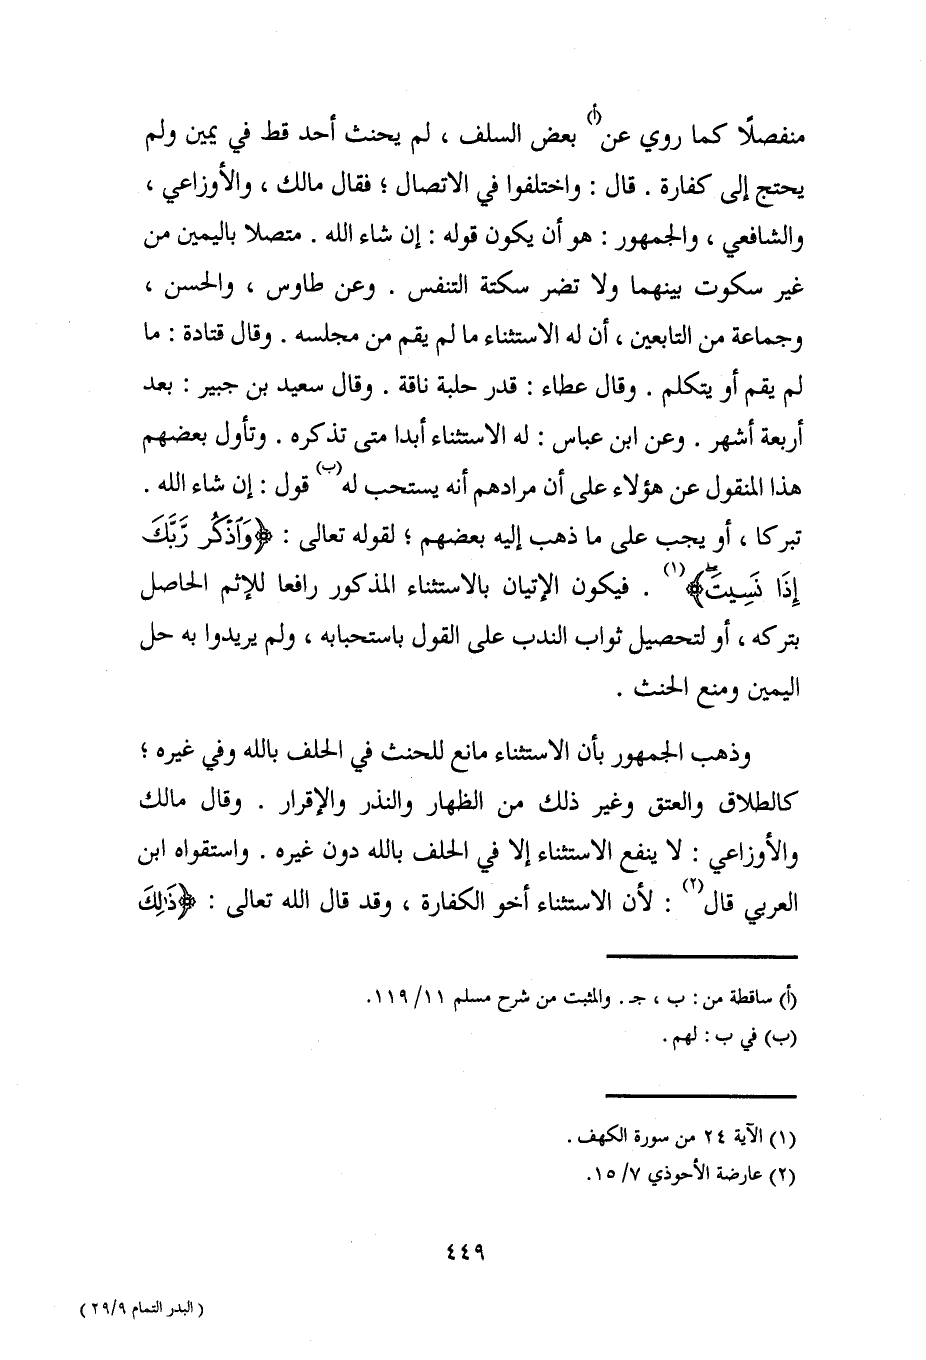 منفصلًا كما روي عن(أ) بعض السلف ، لم يحنث أحد قط في يمين ولم
يحتج إلى كفارة . قال : واختلفوا في الاتصال ؛ فقال مالك ، والأوزاعي ،
والشافعي ، والجمهور : هو أن يكون قوله : إن شاء الله . متصلا باليمين من
غير سكوت بينهما ولا تضر سكتة التنفس . وعن طاوس ، والحسن ،
وجماعة من التابعين ، أن له الاستثناء ما لم يقم من مجلسه . وقال قتادة : ما
لم يقم أو يتكلم . وقال عطاء : قدر حلبة ناقة . وقال سعيد بن جبير : بعد
أربعة أشهر . وعن ابن عباس : له الاستثناء أبدا متى تذكره . وتأول بعضهم
هذا المنقول عن هؤلاء على أن مرادهم أنه يستحب له(ب) قول : إن شاء الله .
تبركا ، أو يجب على ما ذهب إليه بعضهم ؛ لقوله تعالى : ﴿وَٱذْكُر رَّبَّكَ
إِذَا نَسِيتَۖ﴾(١) . فيكون الإتيان بالاستثناء المذكور رافعا للإثم الحاصل
بتركه ، أو لتحصيل ثواب الندب على القول باستحبابه ، ولم يريدوا به حل
اليمين ومنع الحنث .
وذهب الجمهور بأن الاستثناء مانع للحنث في الحلف بالله وفي غيره ؛
كالطلاق والعتق وغير ذلك من الظهار والنذر والإقرار . وقال مالك
والأوزاعي : لا ينفع الاستثناء إلا في الحلف بالله دون غيره . واستقواه ابن
العربي قال(٢) : لأن الاستثناء أخو الكفارة ، وقد قال الله تعالى : ﴿ذَٰلِكَ
(أ) ساقطة من : ب ، جـ . والمثبت من شرح مسلم ١١/ ١١٩.
(ب) في ب : لهم .
(١) الآية ٢٤ من سورة الكهف .
(٢) عارضة الأحوذي ٧/ ١٥.
٤٤٩
( البدر التمام ٢٩/٩ )